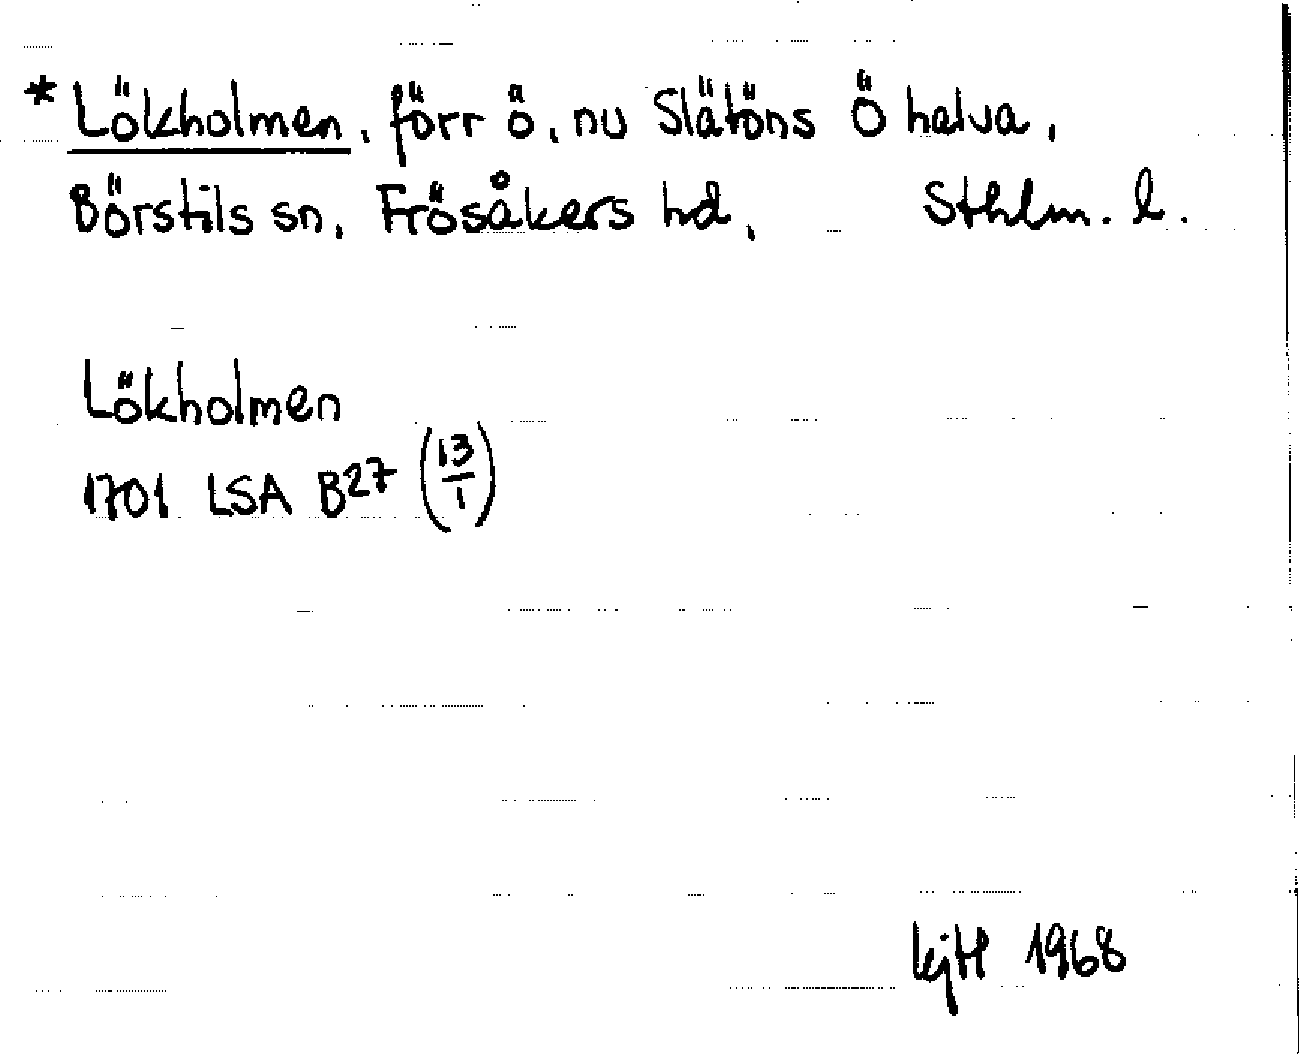 *Lökholmen, förr ö, nu Slätöns Ö halva,
Börstils sn, Frösåkers hd, Sthlm. l.
Lökholmen
1701 LSA B27 (13/1)
KjH 1968